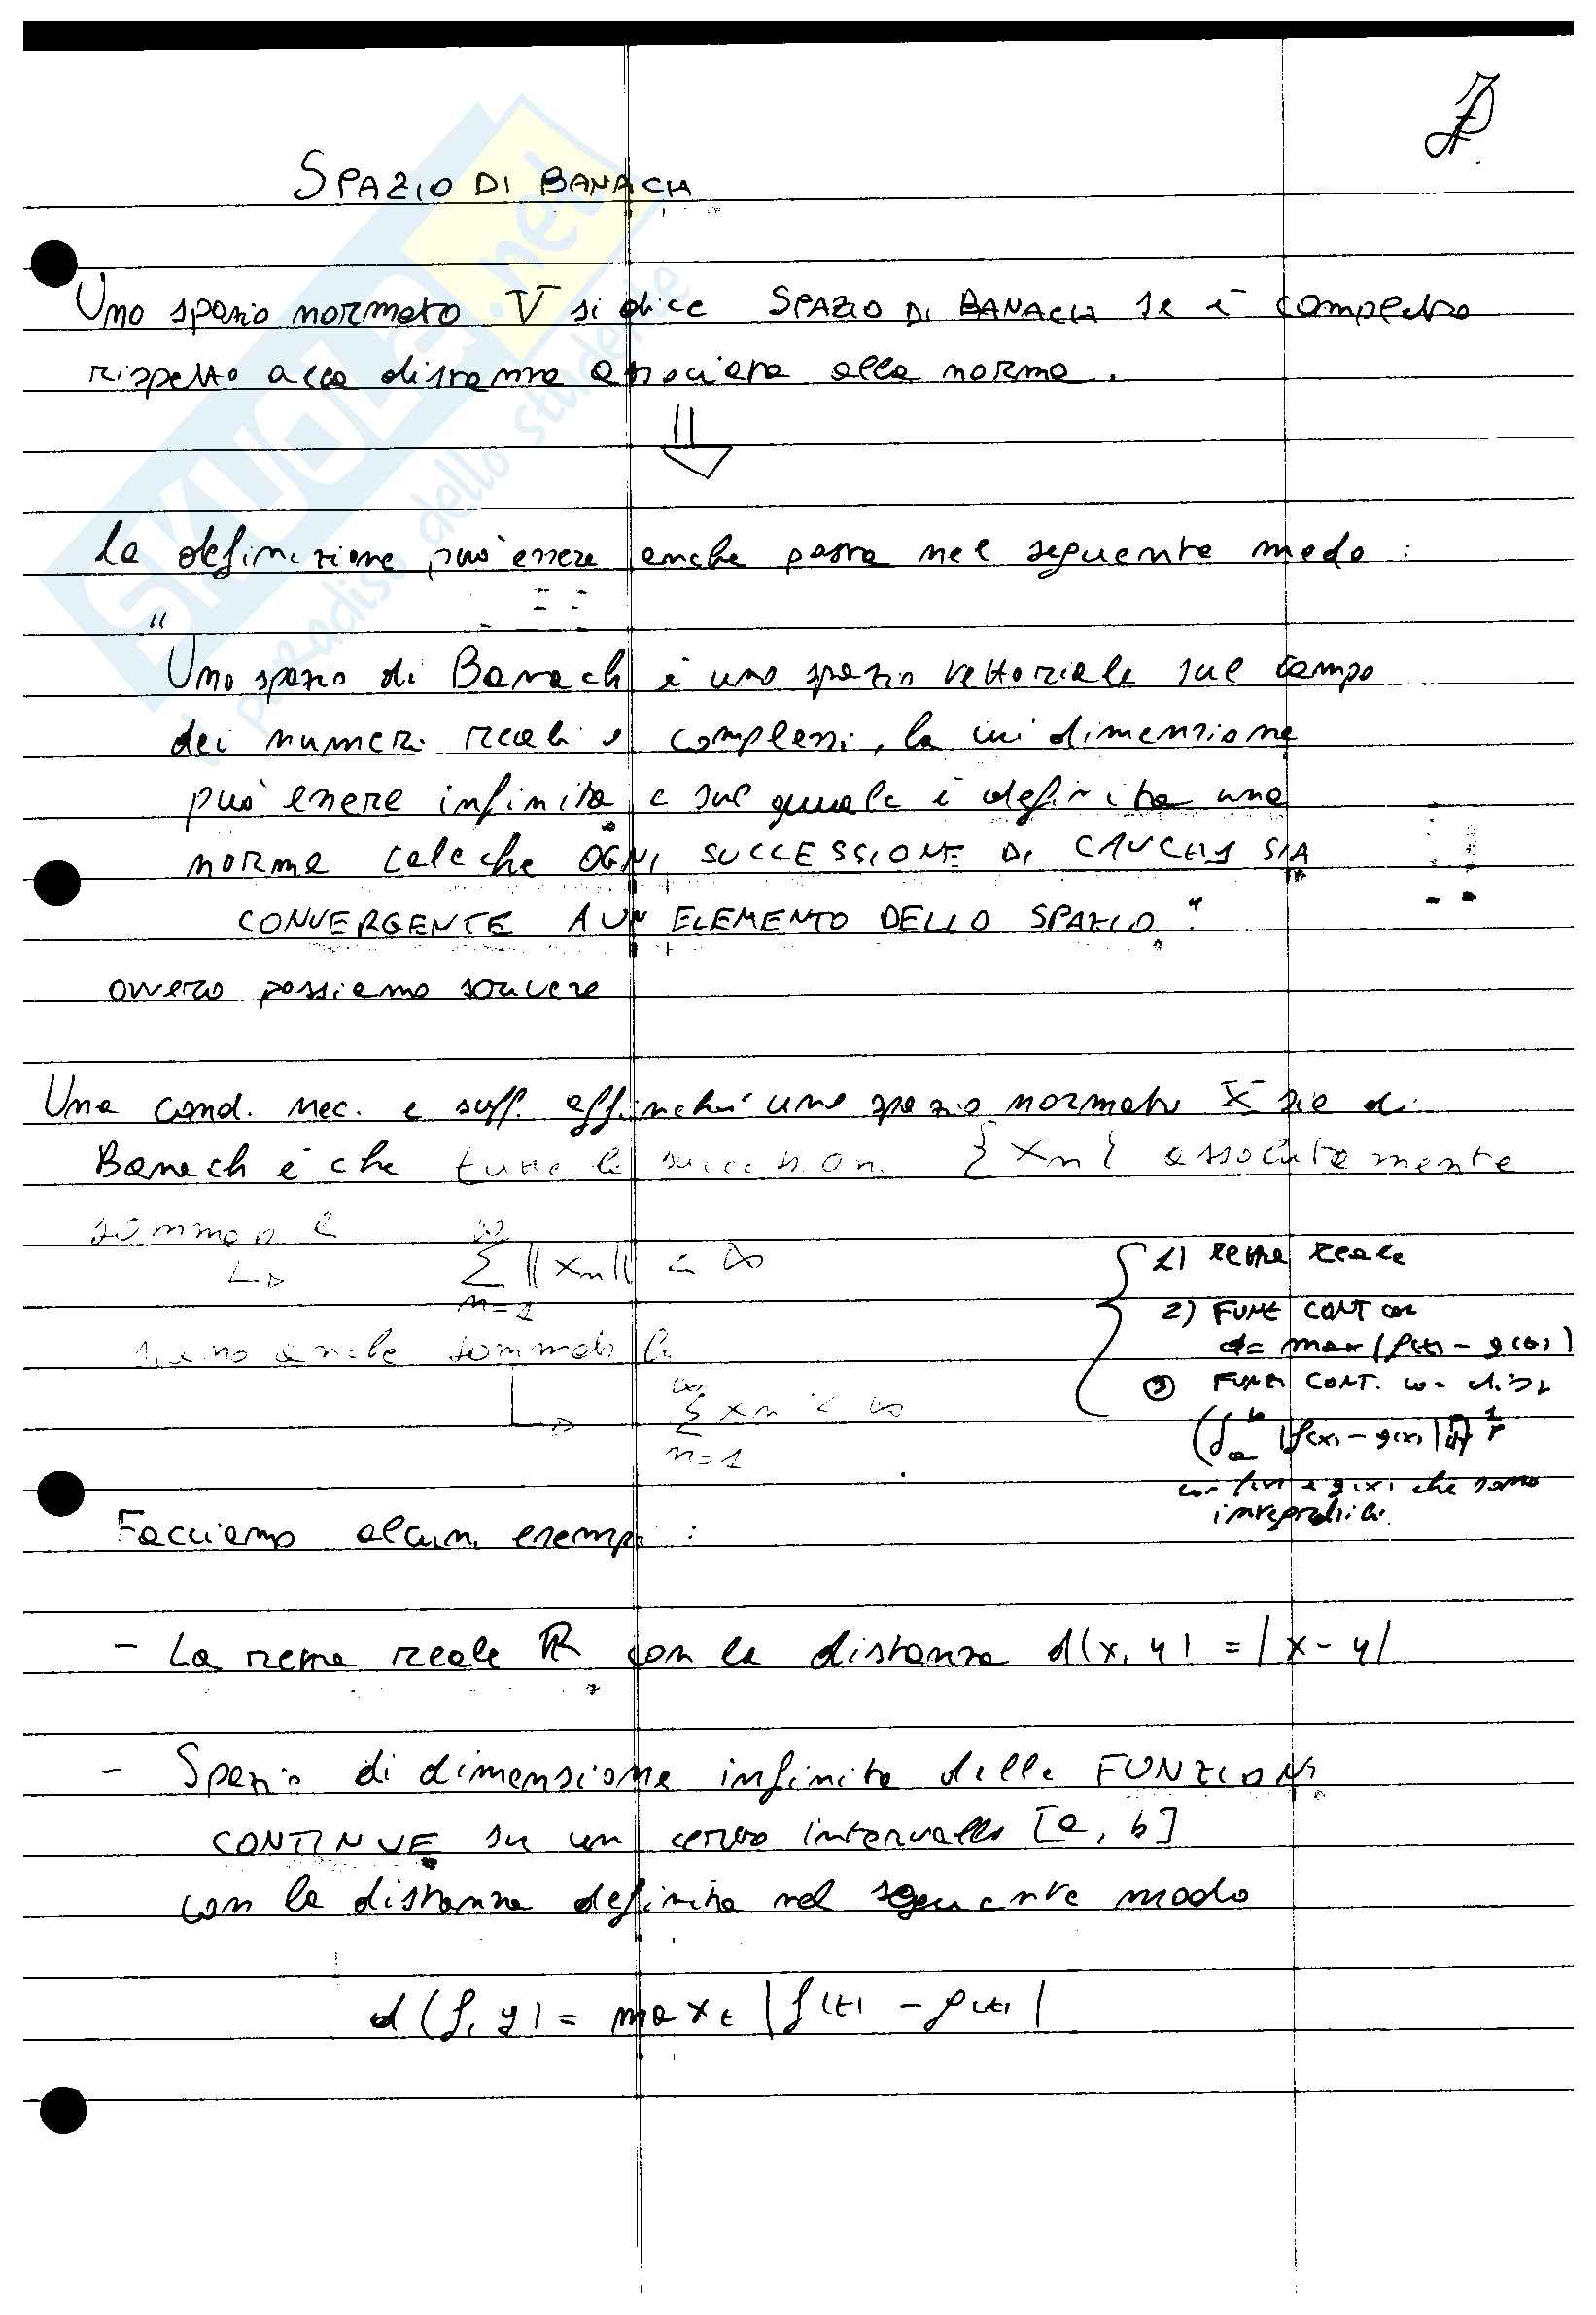 SPAZIO DI BANACH
Uno spazio normato V si dice SPAZIO DI BANACH se è completo
rispetto alla distanza associata alla norma.
⇓
La definizione può essere anche posta nel seguente modo :
"Uno spazio di Banach è uno spazio vettoriale sul campo
dei numeri reali o complessi, la cui dimensione
può essere infinita e sul quale è definita una
norma tale che OGNI SUCCESSIONE DI CAUCHY SIA
CONVERGENTE A UN ELEMENTO DELLO SPAZIO."
ovvero possiamo scrivere
Una cond. nec. e suff. affinché uno spazio normato X sia di
Banach è che tutte le successioni {xn} assolutamente
sommabile
∑ ||xn|| < ∞
n=1
siano anche sommabili
∞
∑ xn < ∞
n=1
1) retta reale
2) FUNZ CONT con
d= max |f(t) - g(t)|
3) FUNZ CONT. con dist
(∫ab |f(x) - g(x)|p dx)1/p
con f(x) e g(x) che sono
integrabili.
Facciamo alcuni esempi :
- La retta reale ℝ con la distanza d(x, y) = |x - y|
- Spazio di dimensione infinita delle FUNZIONI
CONTINUE su un certo intervallo [a, b]
con la distanza definita nel seguente modo
d(f, g) = max t |f(t) - g(t)|
SKUOLA.net
il paradiso dello studente